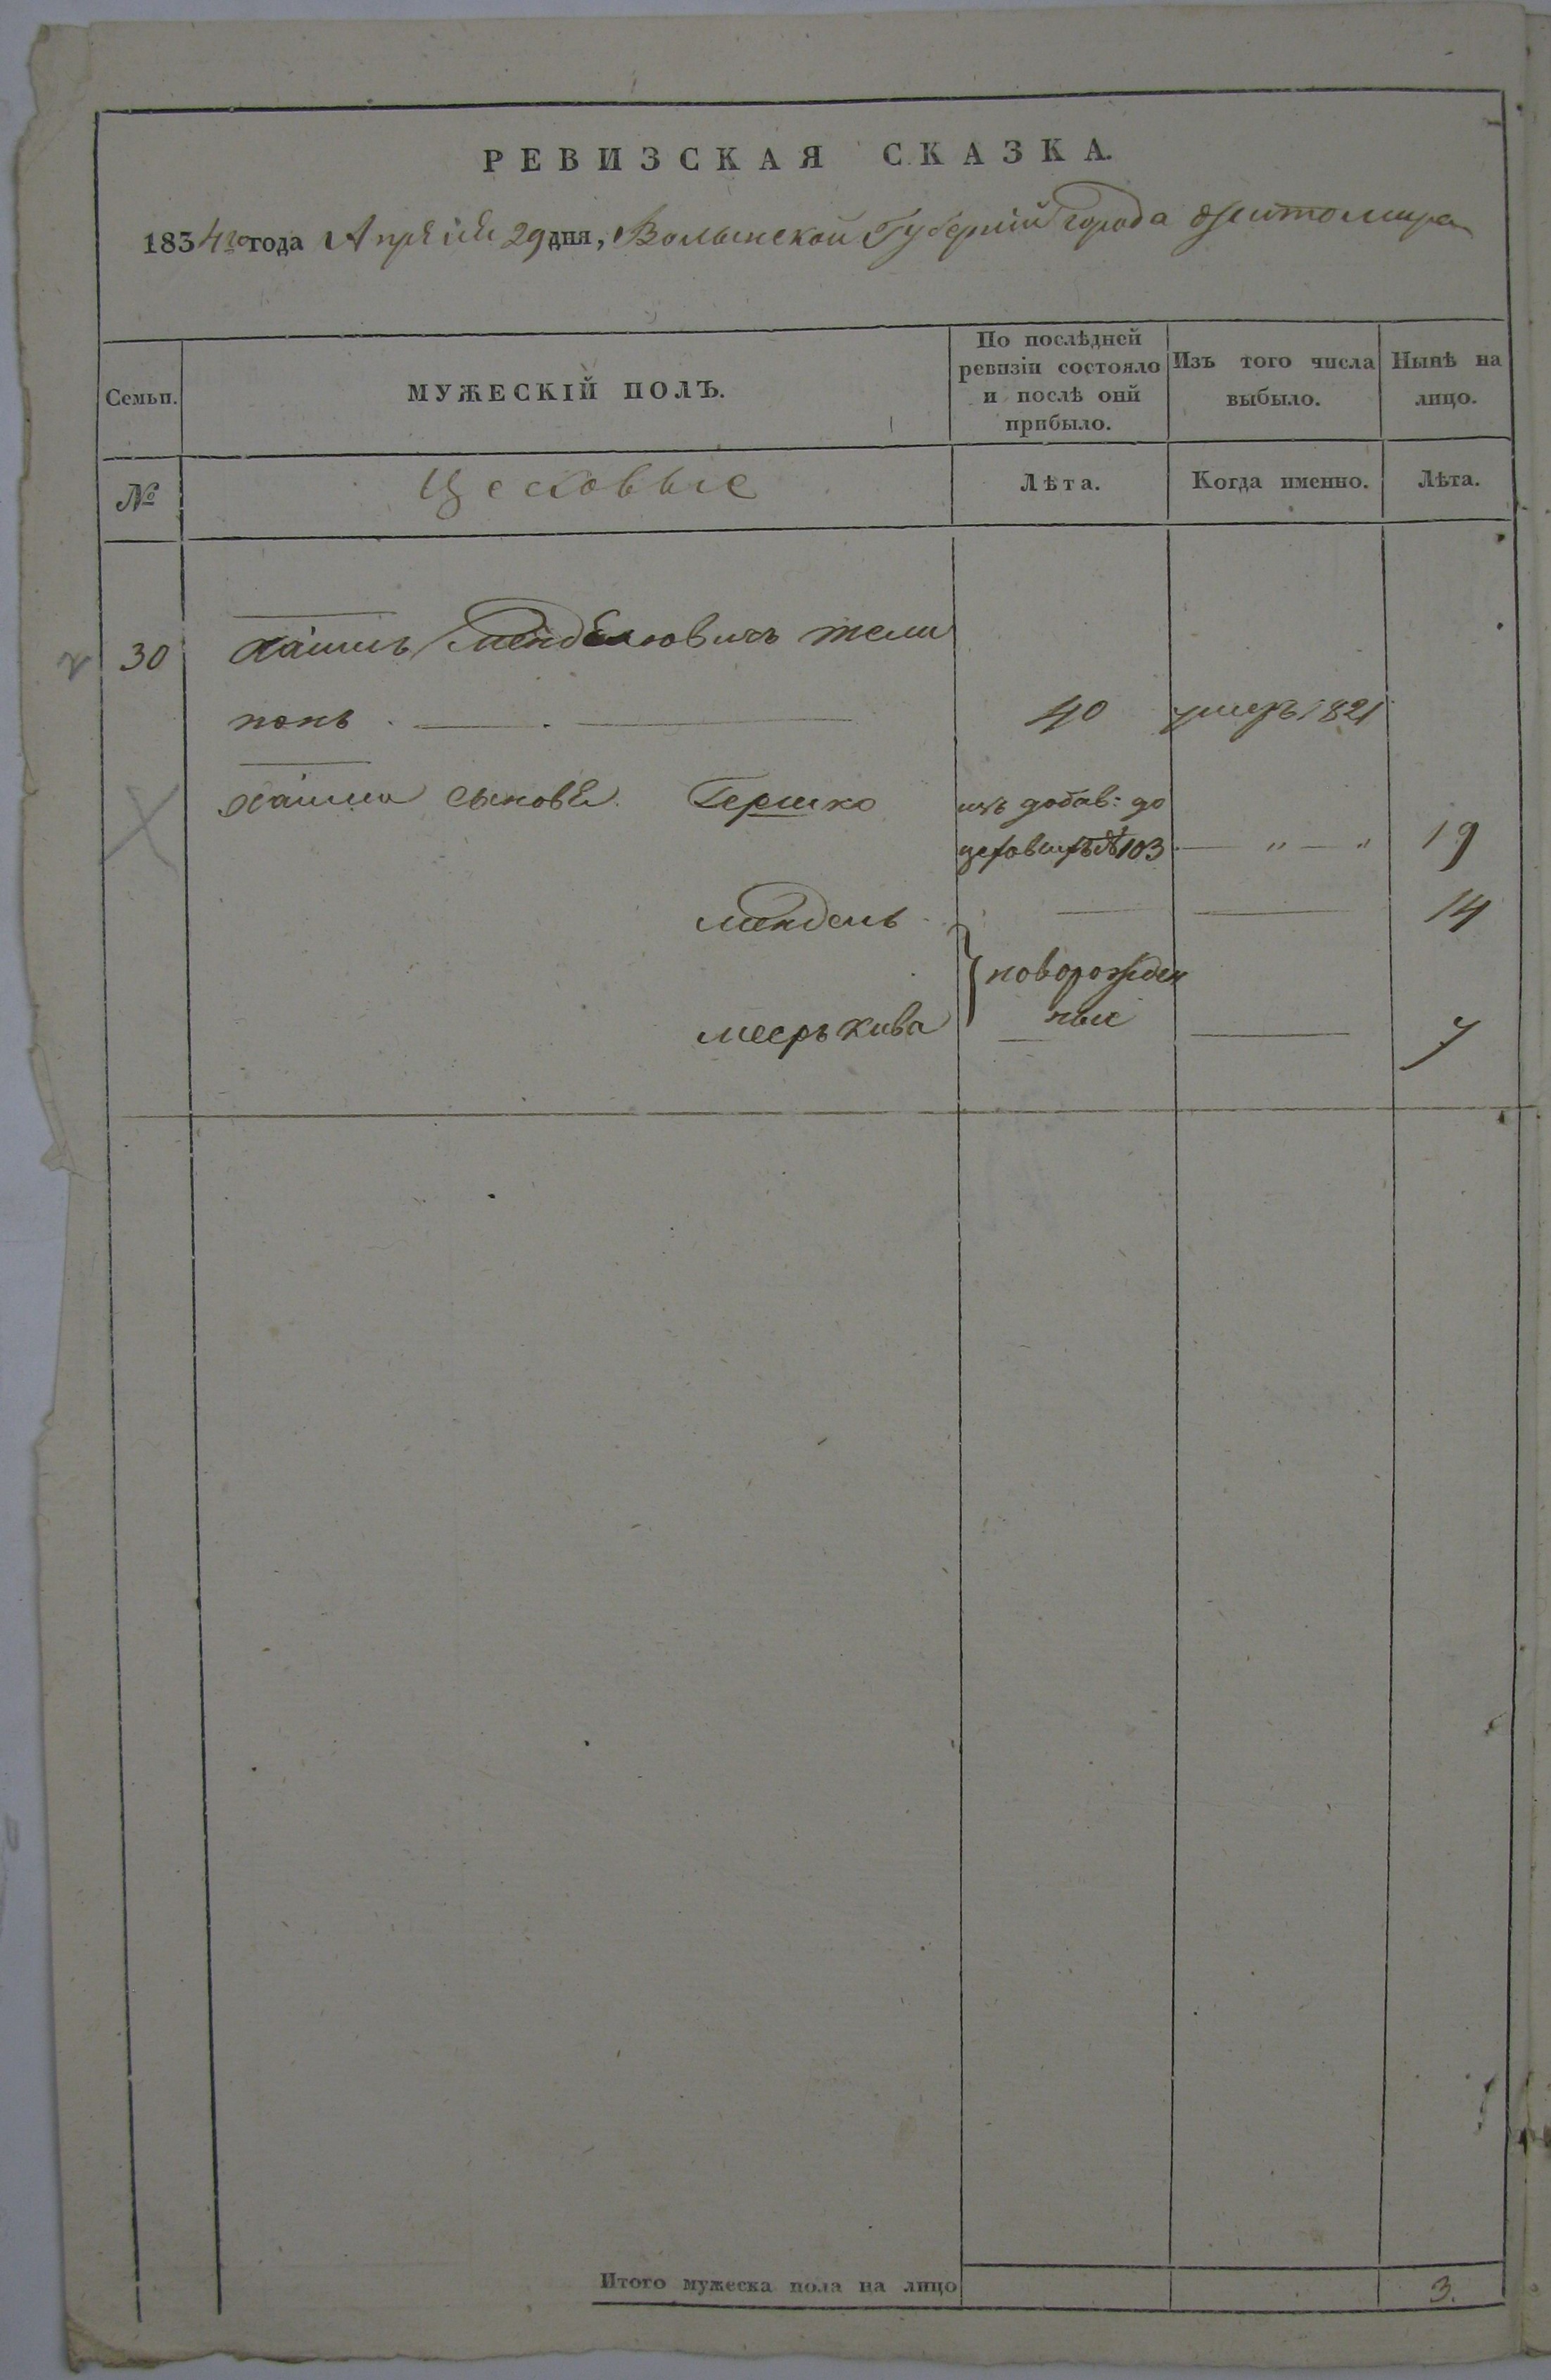 РЕВИЗСКАЯ СКАЗКА.
1834го года Апрѣля 29 дня, Волынской Губерніи города Житомира
Семьи.
МУЖЕСКІЙ ПОЛЪ.
По послѣдней
ревизіи состояло
и послѣ оній
прибыло.
Изъ того числа
выбыло.
Нынѣ на
лицо.
№
Цеховые
Лѣта.
Когда именно.
Лѣта.
30 Хаимъ Менделіовичъ
40 умеръ 1821
Хаима сыновья Гершко изъ добав: до
№ 103 19
Мендель 14
новорожден
ные
Меерь Кива 7
Итого мужеска пола на лицо 3.